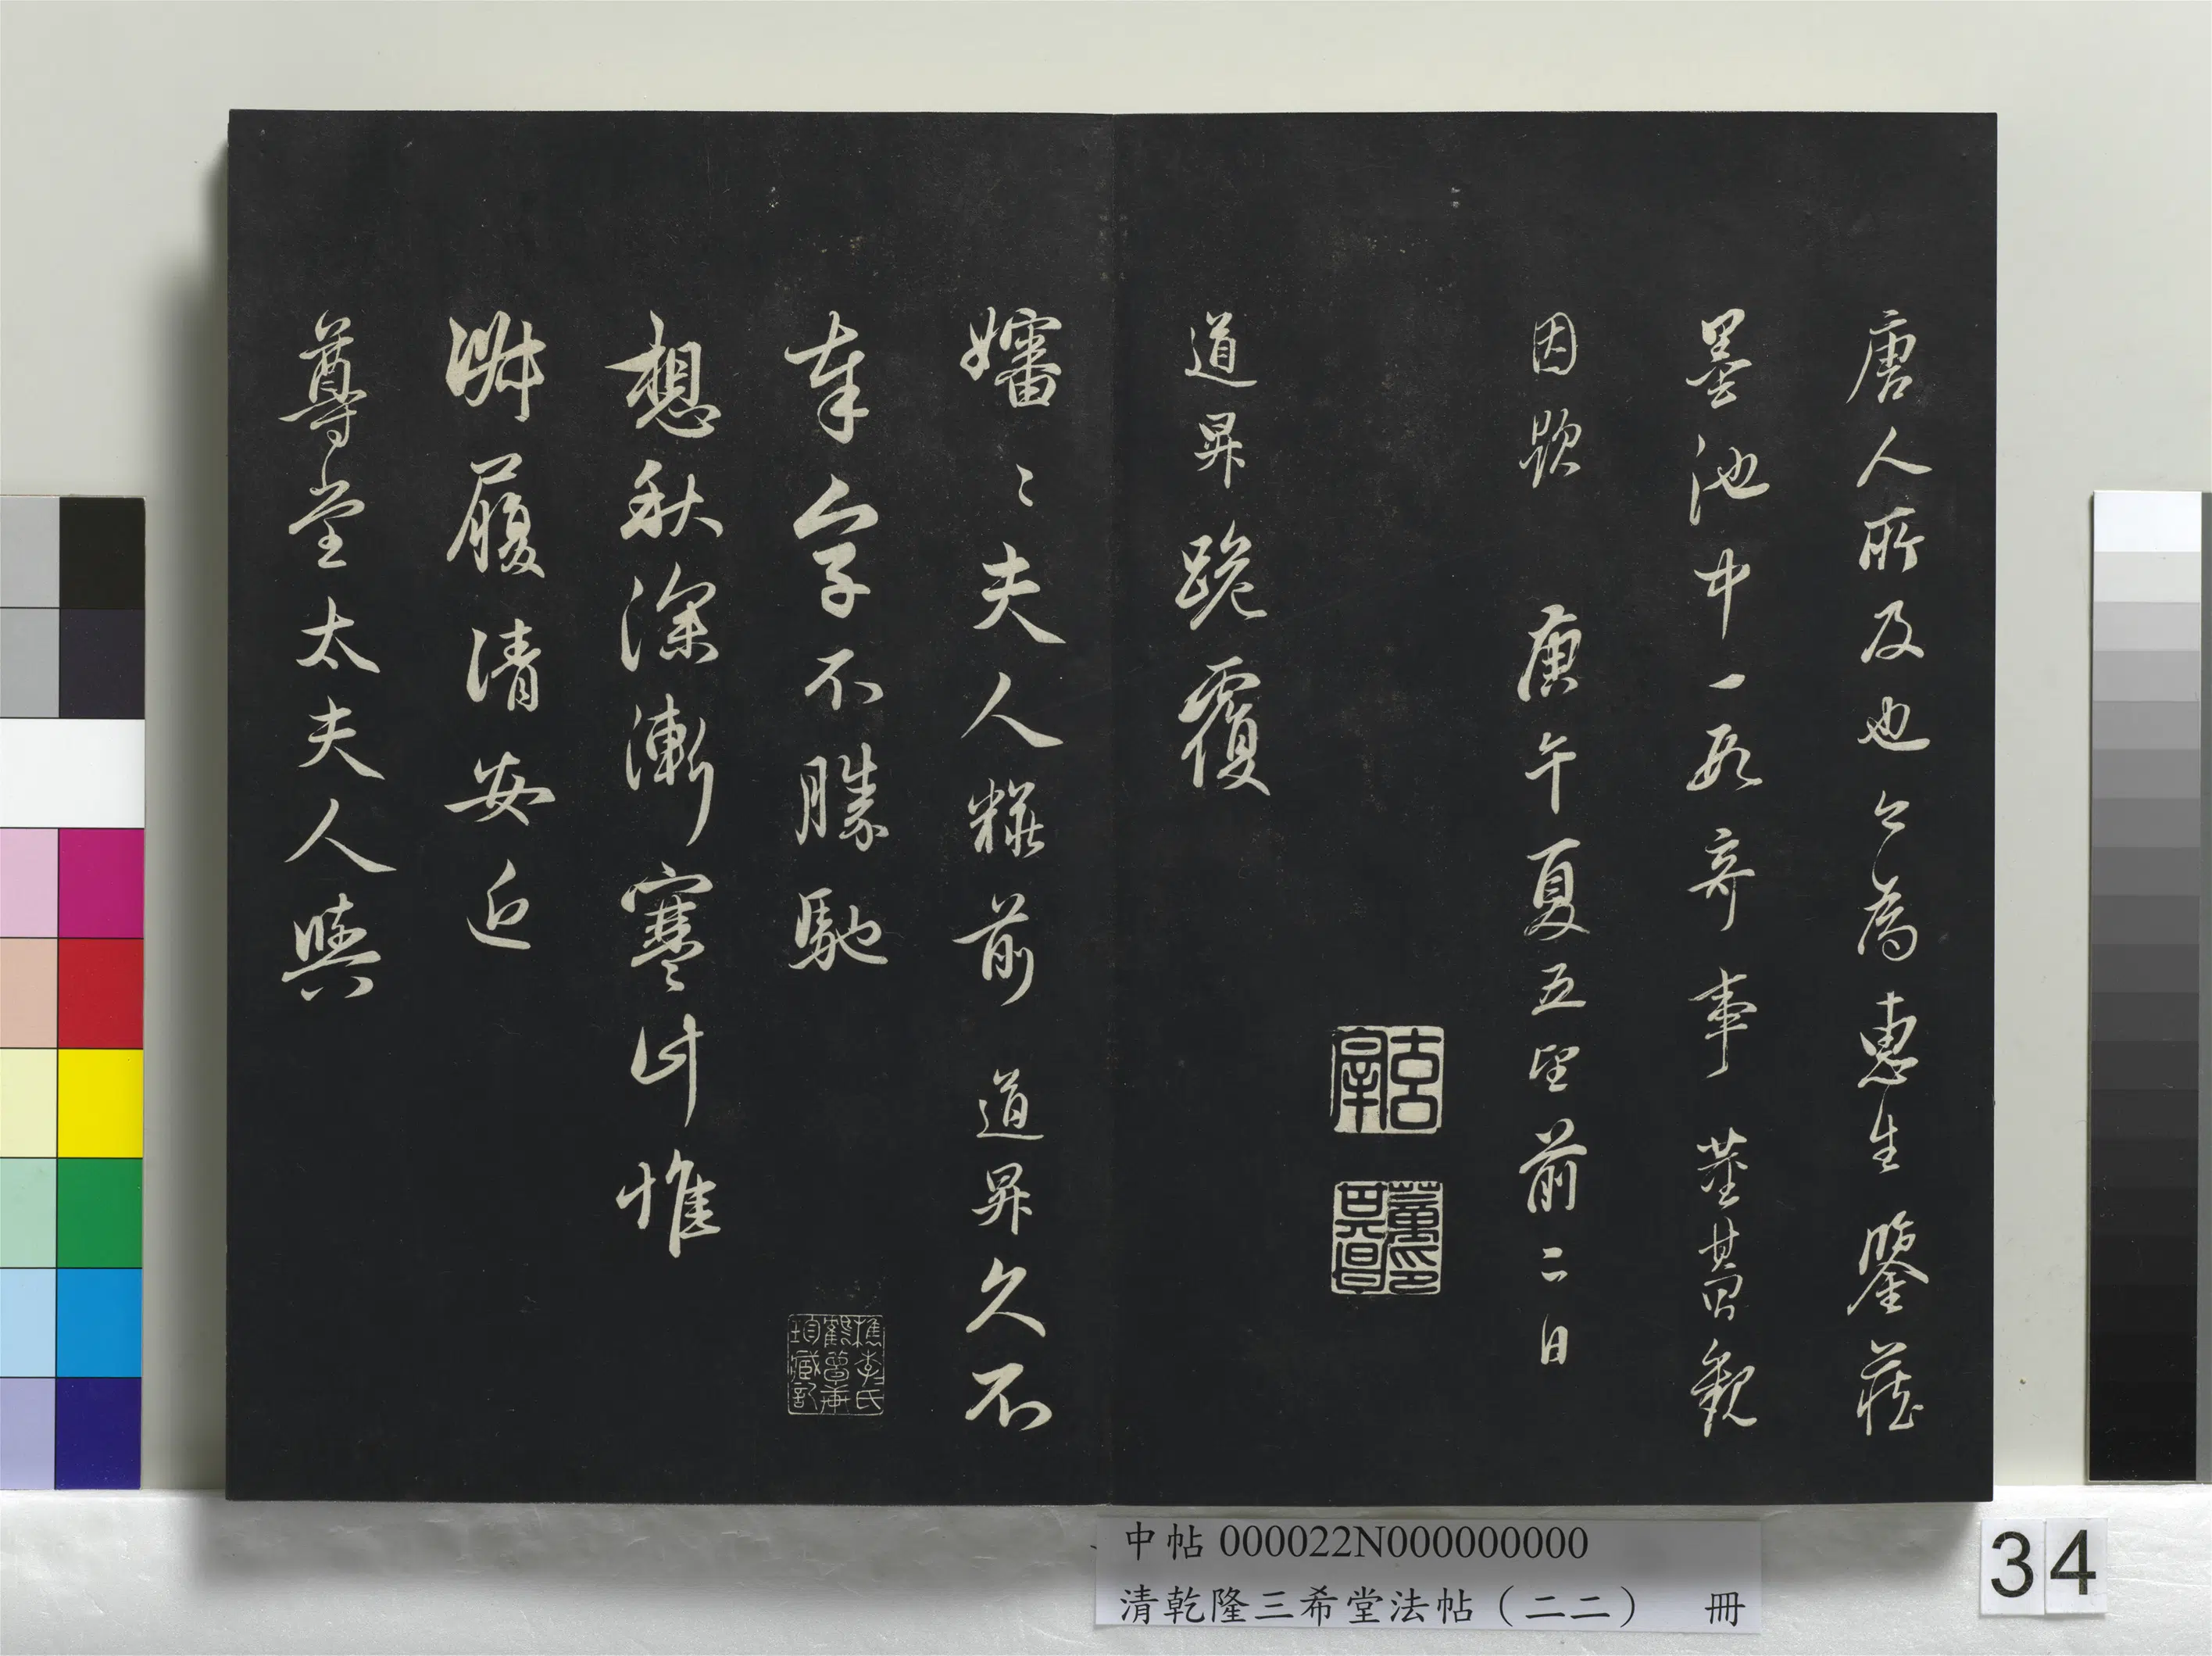 唐人所及也今為惠生鑒藏
墨池中一段奇事 董其昌觀
因題 庚午夏五望前二日
董印其昌
道昇跪覆
嬸〻夫人粧前 道昇久不
奉字不勝馳
檇李李氏鶴夢軒珍藏記
想秋深漸寒計惟
淑履清安近
尊堂太夫人與
中帖 000022N000000000
清乾隆三希堂法帖（二二） 冊
34